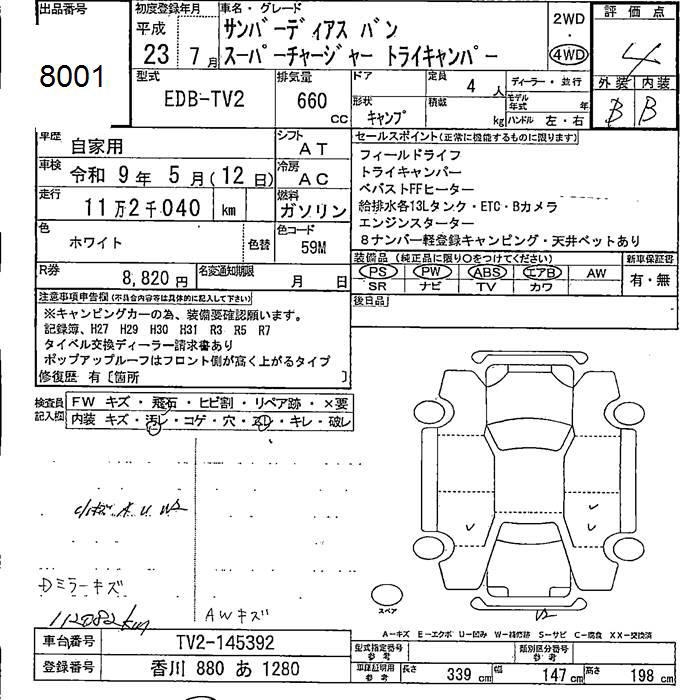 出品番号 初度登録年月 車名・グレード 2WD ・ 4WD 評価点
8001 平成 23 7月 サンバーディアス バン スーパーチャージャー トライキャンパー 4
型式 EDB-TV2 排気量 660 CC ドア 定員 4 人 ディーラー・並行 外装 内装
形状 キャンプ 積載 kg モデル年式 年 ハンドル 左・右 B B
車歴 自家用 シフト AT
車検 令和 9年 5月(12日) 冷房 AC
走行 11万2千040 km 燃料 ガソリン
色 ホワイト 色替 色コード 59M
R券 8,820円 名変通知期限 月 日
セールスポイント(正常に機能するものに限ります)
フィールドライフ
トライキャンパー
ベバストFFヒーター
給排水各13Lタンク・ETC・Bカメラ
エンジンスターター
8ナンバー軽登録キャンピング・天井ベットあり
装備品(純正品に限り○をつけてください) 新車保証書
PS PW ABS エアB AW 有・無
SR ナビ TV カワ
後日品
注意事項申告欄(不具合内容等は具体的に記入して下さい)
※キャンピングカーの為、装備要確認願います。
記録簿、H27 H29 H30 H31 R3 R5 R7
タイベル交換ディーラー請求書あり
ポップアップルーフはフロント側が高く上がるタイプ
修復歴 有〔箇所 〕
検査員記入図 FW キズ・飛石・ヒビ割・リペア跡・×要
内装 キズ・汚レ・コゲ・穴・ヌレ・キレ・破レ
A U W2
Dミラーキズ
AWキズ
112082km
スペア
U2
A-キズ E-エクボ U-凹み W-補修跡 S-サビ C-腐食 XX-交換済
車台番号 TV2-145392
登録番号 香川 880 あ 1280
型式指定番号 参考 類別区分番号 参考
車庫証明用 参考 長さ 339 cm 幅 147 cm 高さ 198 cm